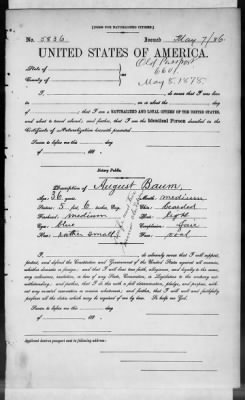 [FORM FOR NATURALIZED CITIZEN.]
No. 5836 Issued May 7/86
UNITED STATES OF AMERICA.
State of
County of
Old Passport
6601
May 5, 1878.
I, do swear that I was born
in on or about the day
of ; that I am a NATURALIZED AND LOYAL CITIZEN OF THE UNITED STATES,
and about to travel abroad; and further, that I am the Identical Person described in the
Certificate of Naturalization herewith presented.
Sworn to before me, this day
of 188
Notary Public.
Description of August Baum,
Age: 36 years Mouth: medium
Stature: 5 feet 6 inches, Eng. Chin: bearded
Forehead: medium Hair: light
Eyes: blue Complexion: fair
Nose: rather small Face: oval
I, do solemnly swear that I will support,
protect, and defend the Constitution and Government of the United States against all enemies,
whether domestic or foreign; and that I will bear true faith, allegiance, and loyalty to the same,
any ordinance, resolution, or law of any State, Convention, or Legislature to the contrary not-
withstanding; and further, that I do this with a full determination, pledge, and purpose, with-
out any mental reservation or evasion whatsoever; and further, that I will well and faithfully
perform all the duties which may be required of me by law. So help me God.
Sworn to before me, this day
of 188
Applicant desires passport sent to following address: